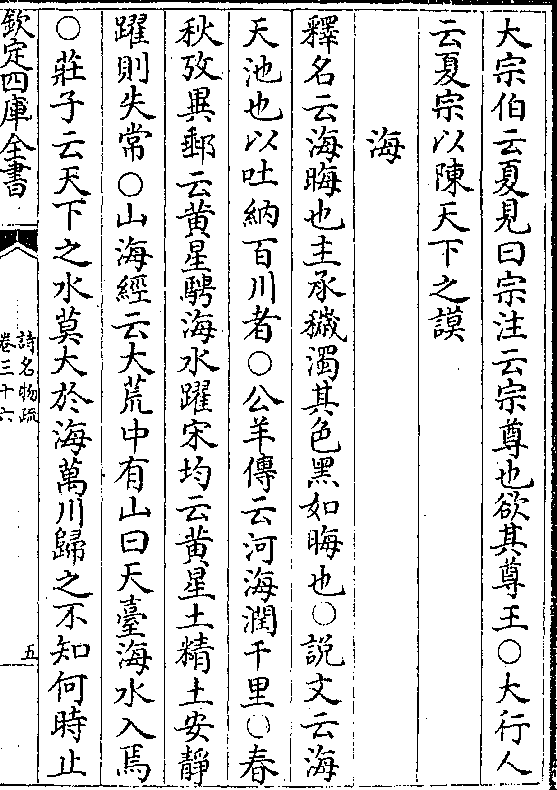 大宗伯云夏見曰宗注云宗尊也欲其尊王○大行人
云夏宗以陳天下之謨
海
釋名云海晦也主承穢濁其色黑如晦也○説文云海
天池也以吐納百川者○公羊傳云河海潤千里○春
秋攷異郵云黄星騁海水躍宋均云黄星土精土安靜
躍則失常○山海經云大荒中有山曰天臺海水入焉
○莊子云天下之水莫大於海萬川歸之不知何時止
欽定四庫全書
詩名物疏
卷三十六
五